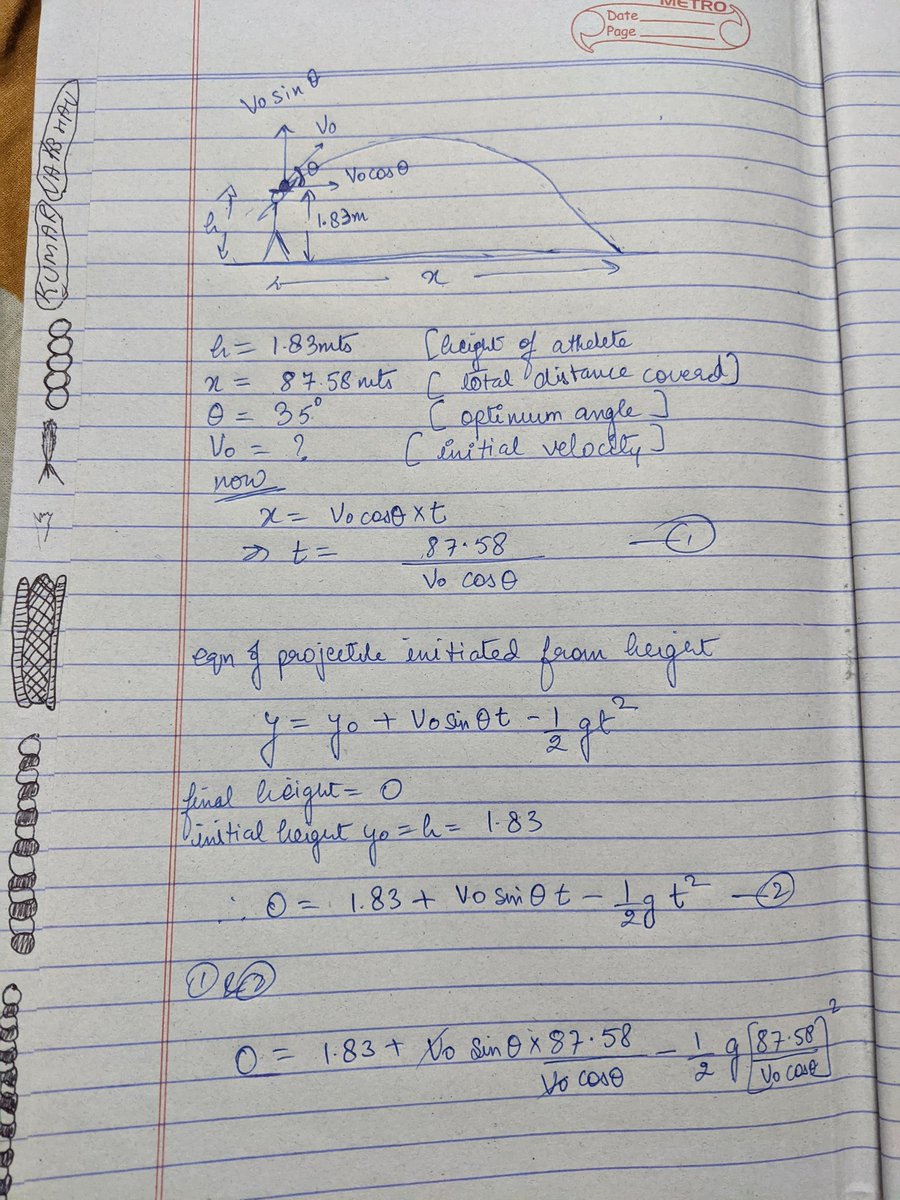 METRO
Date
Page
KUMAR VAIBHAV
Vo sin θ
Vo
θ
Vo cos θ
h
1.83m
x
h = 1.83mts [height of athelete
x = 87.58 mts [total distance coverd]
θ = 35° [optimum angle]
Vo = ? [initial velocity]
now
x = Vo cosθ × t
⇒ t = 87.58 / Vo cosθ —①
eqn of projectile initiated from height
y = yo + Vo sin θt - 1/2 gt²
final height = 0
initial height yo = h = 1.83
∴ 0 = 1.83 + Vo sin θ t - 1/2 g t² —②
① & ②
0 = 1.83 + Vo sin θ × 87.58 / Vo cosθ - 1/2 g [87.58 / Vo cosθ]²